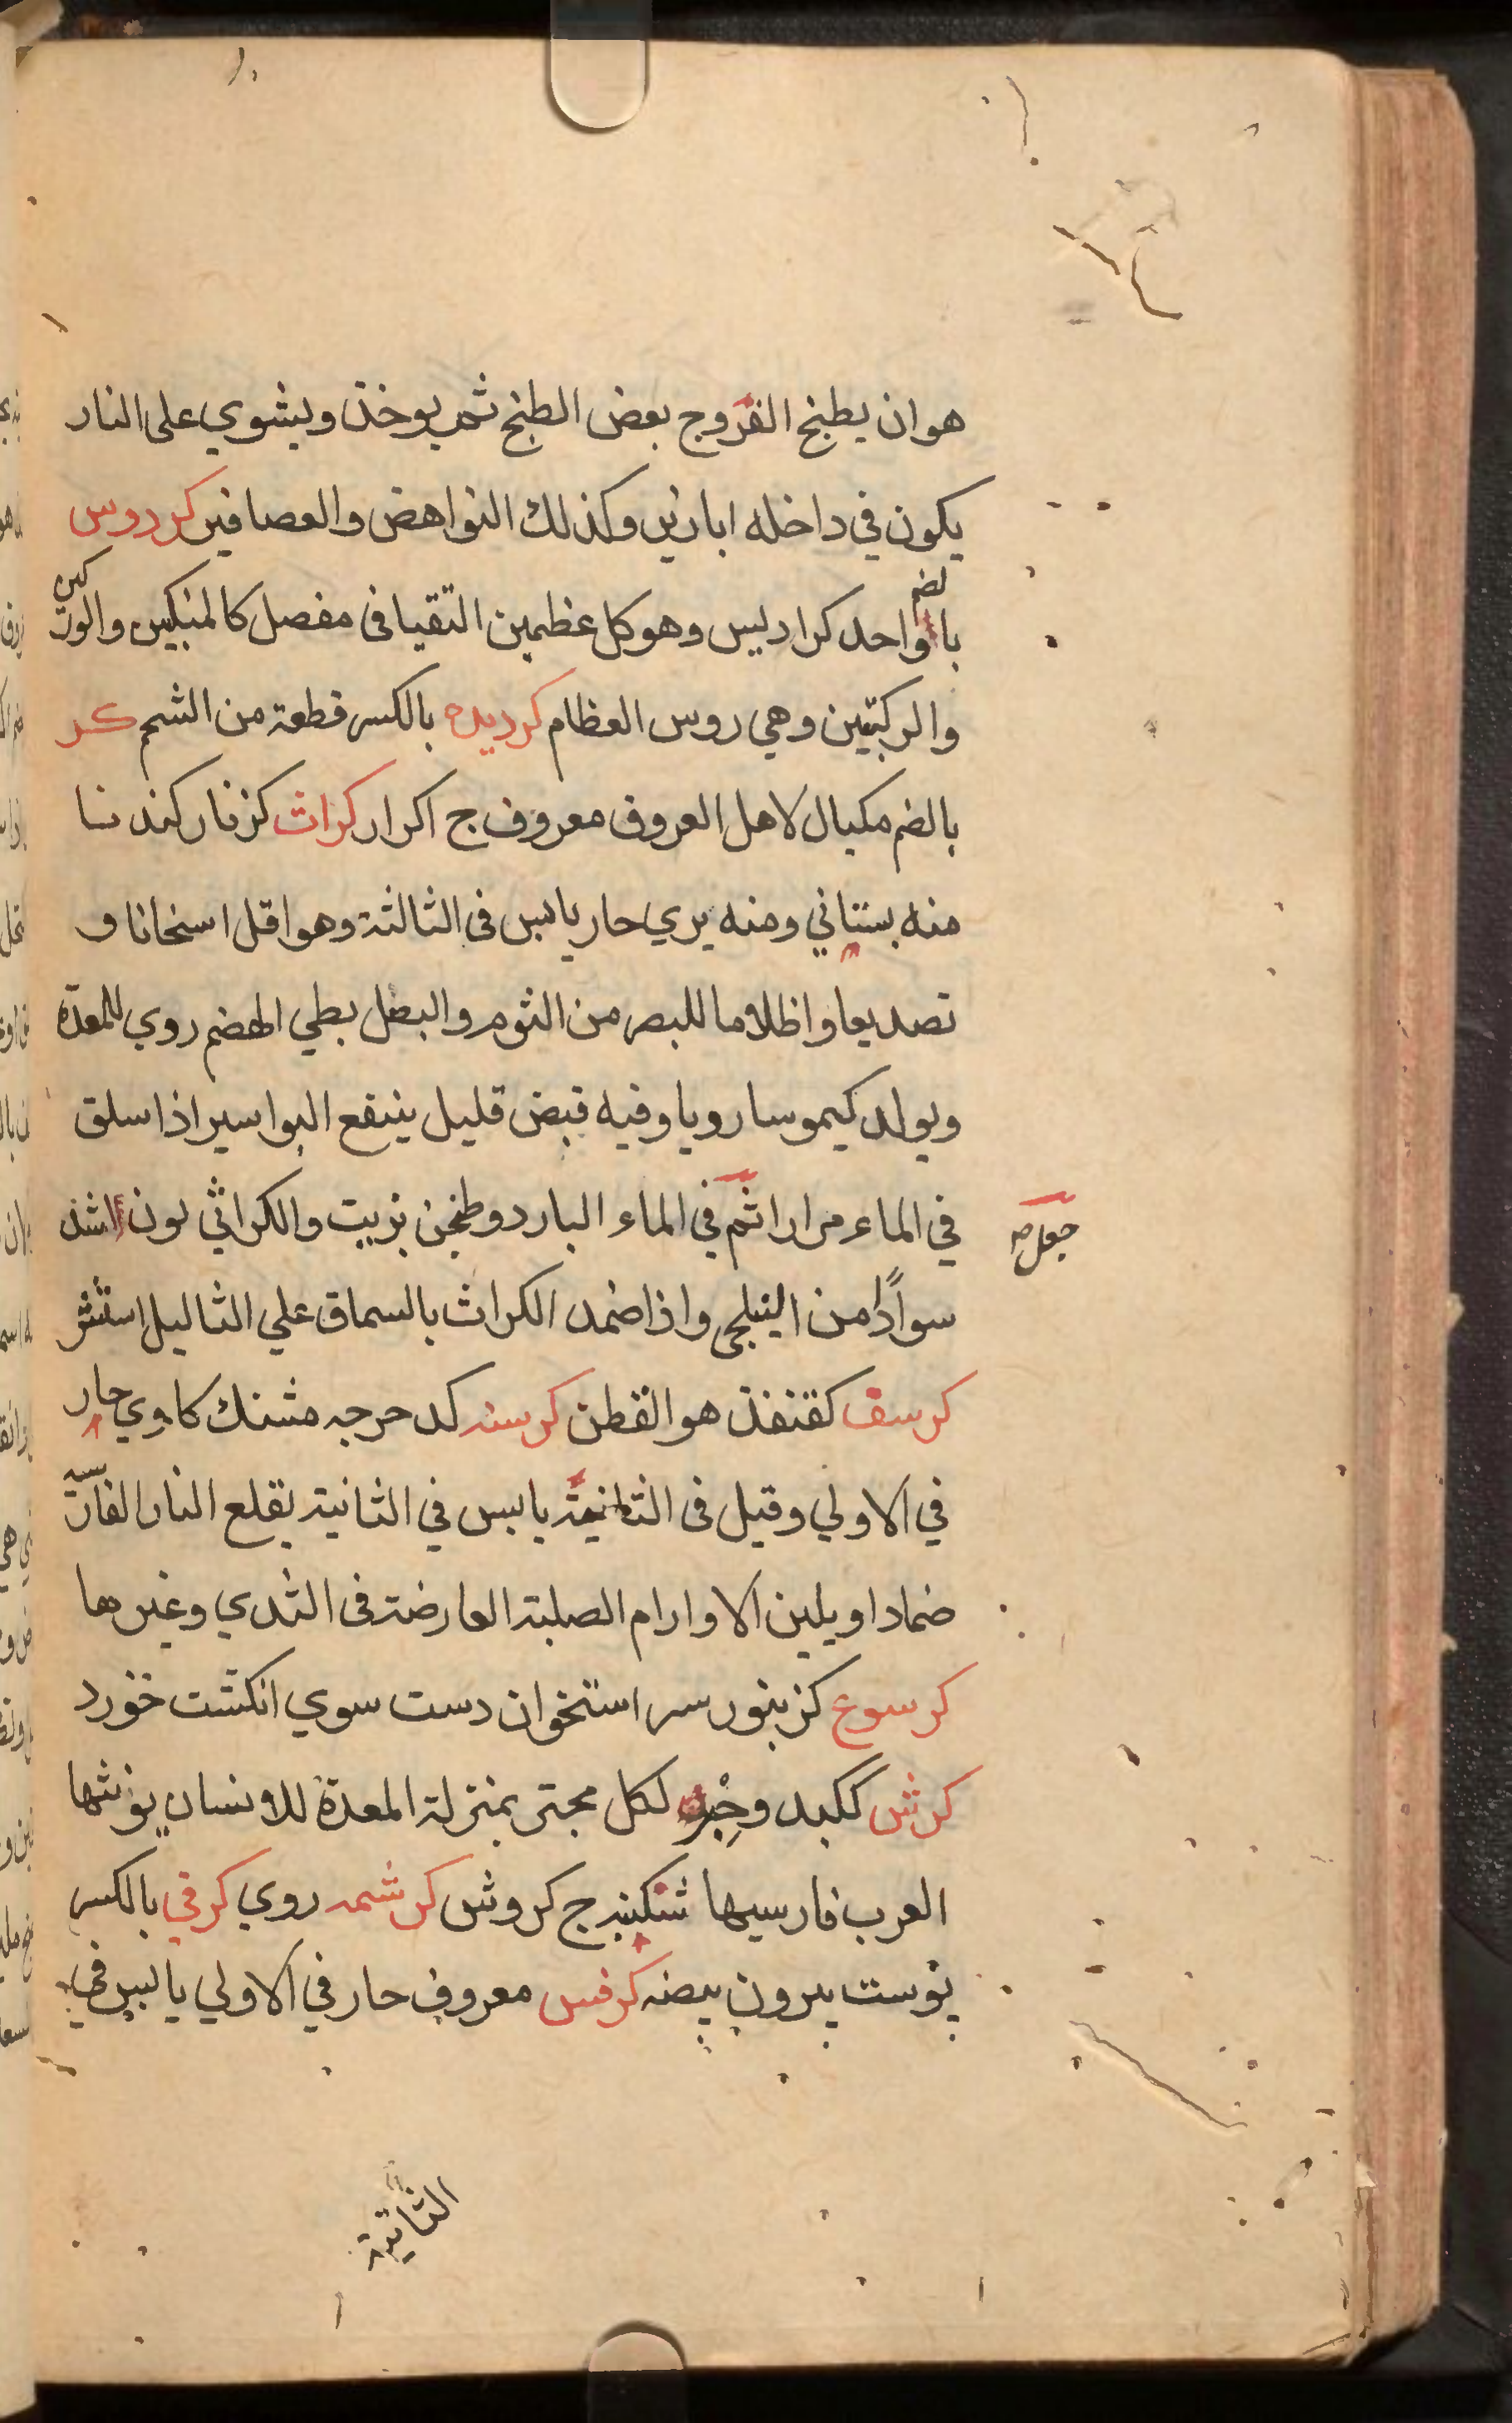 هو ان يطبخ الفرّوج بعض الطبخ ثم يوخذ ويشوي على النار
يكون في داخله ابازير وكذلك النواهض والعصافير كردوس
بالضم واحد كراديس وهو كل عظمين التقيا فى مفصل كالمنكبين والوركين
والركبتين وهي روس العظام كرديده بالكسر قطعة من الشحم كر
بالضم مكيال لاهل العروق معروف ج اكرار كراث كزنار كندنا
منه بستاني ومنه بري حار يابس فى الثالثة وهو اقل اسخانا و
تصديعا واظلاما للبصر من الثوم والبصل بطي الهضم روي للمعدة
ويولد كيموسا رويا وفيه قبض قليل ينفع البواسير اذا سلق
في الماء مرارا ثم في الماء البارد وطنجن بزيت والكراثي لون اشد
جعل صح
سوادًا من النيلجي واذا ضمد الكراث بالسماق علي الثاليل استنثر
كرسف كقنفذ هو القطن كرسنه كدحرجه مشنك كاوي حار
في الاولي وقيل فى الثانية يابس في الثانية يقلع النار الفارسية
ضمادا ويلين الاوارام الصلبة العارضة فى الثدي وغيرها
كرسوع كزنبور سر استخوان دست سوي انكشت خورد
كرش ككبد وحِبْر لكل مجتر بمنزلة المعدة للانسان يونثها
العرب فارسيها شكنبه ج كروش كرشمه روي كرفي بالكسر
پوست بيرون بيضه كرفس معروف حار في الاولي يابس في
الثانية